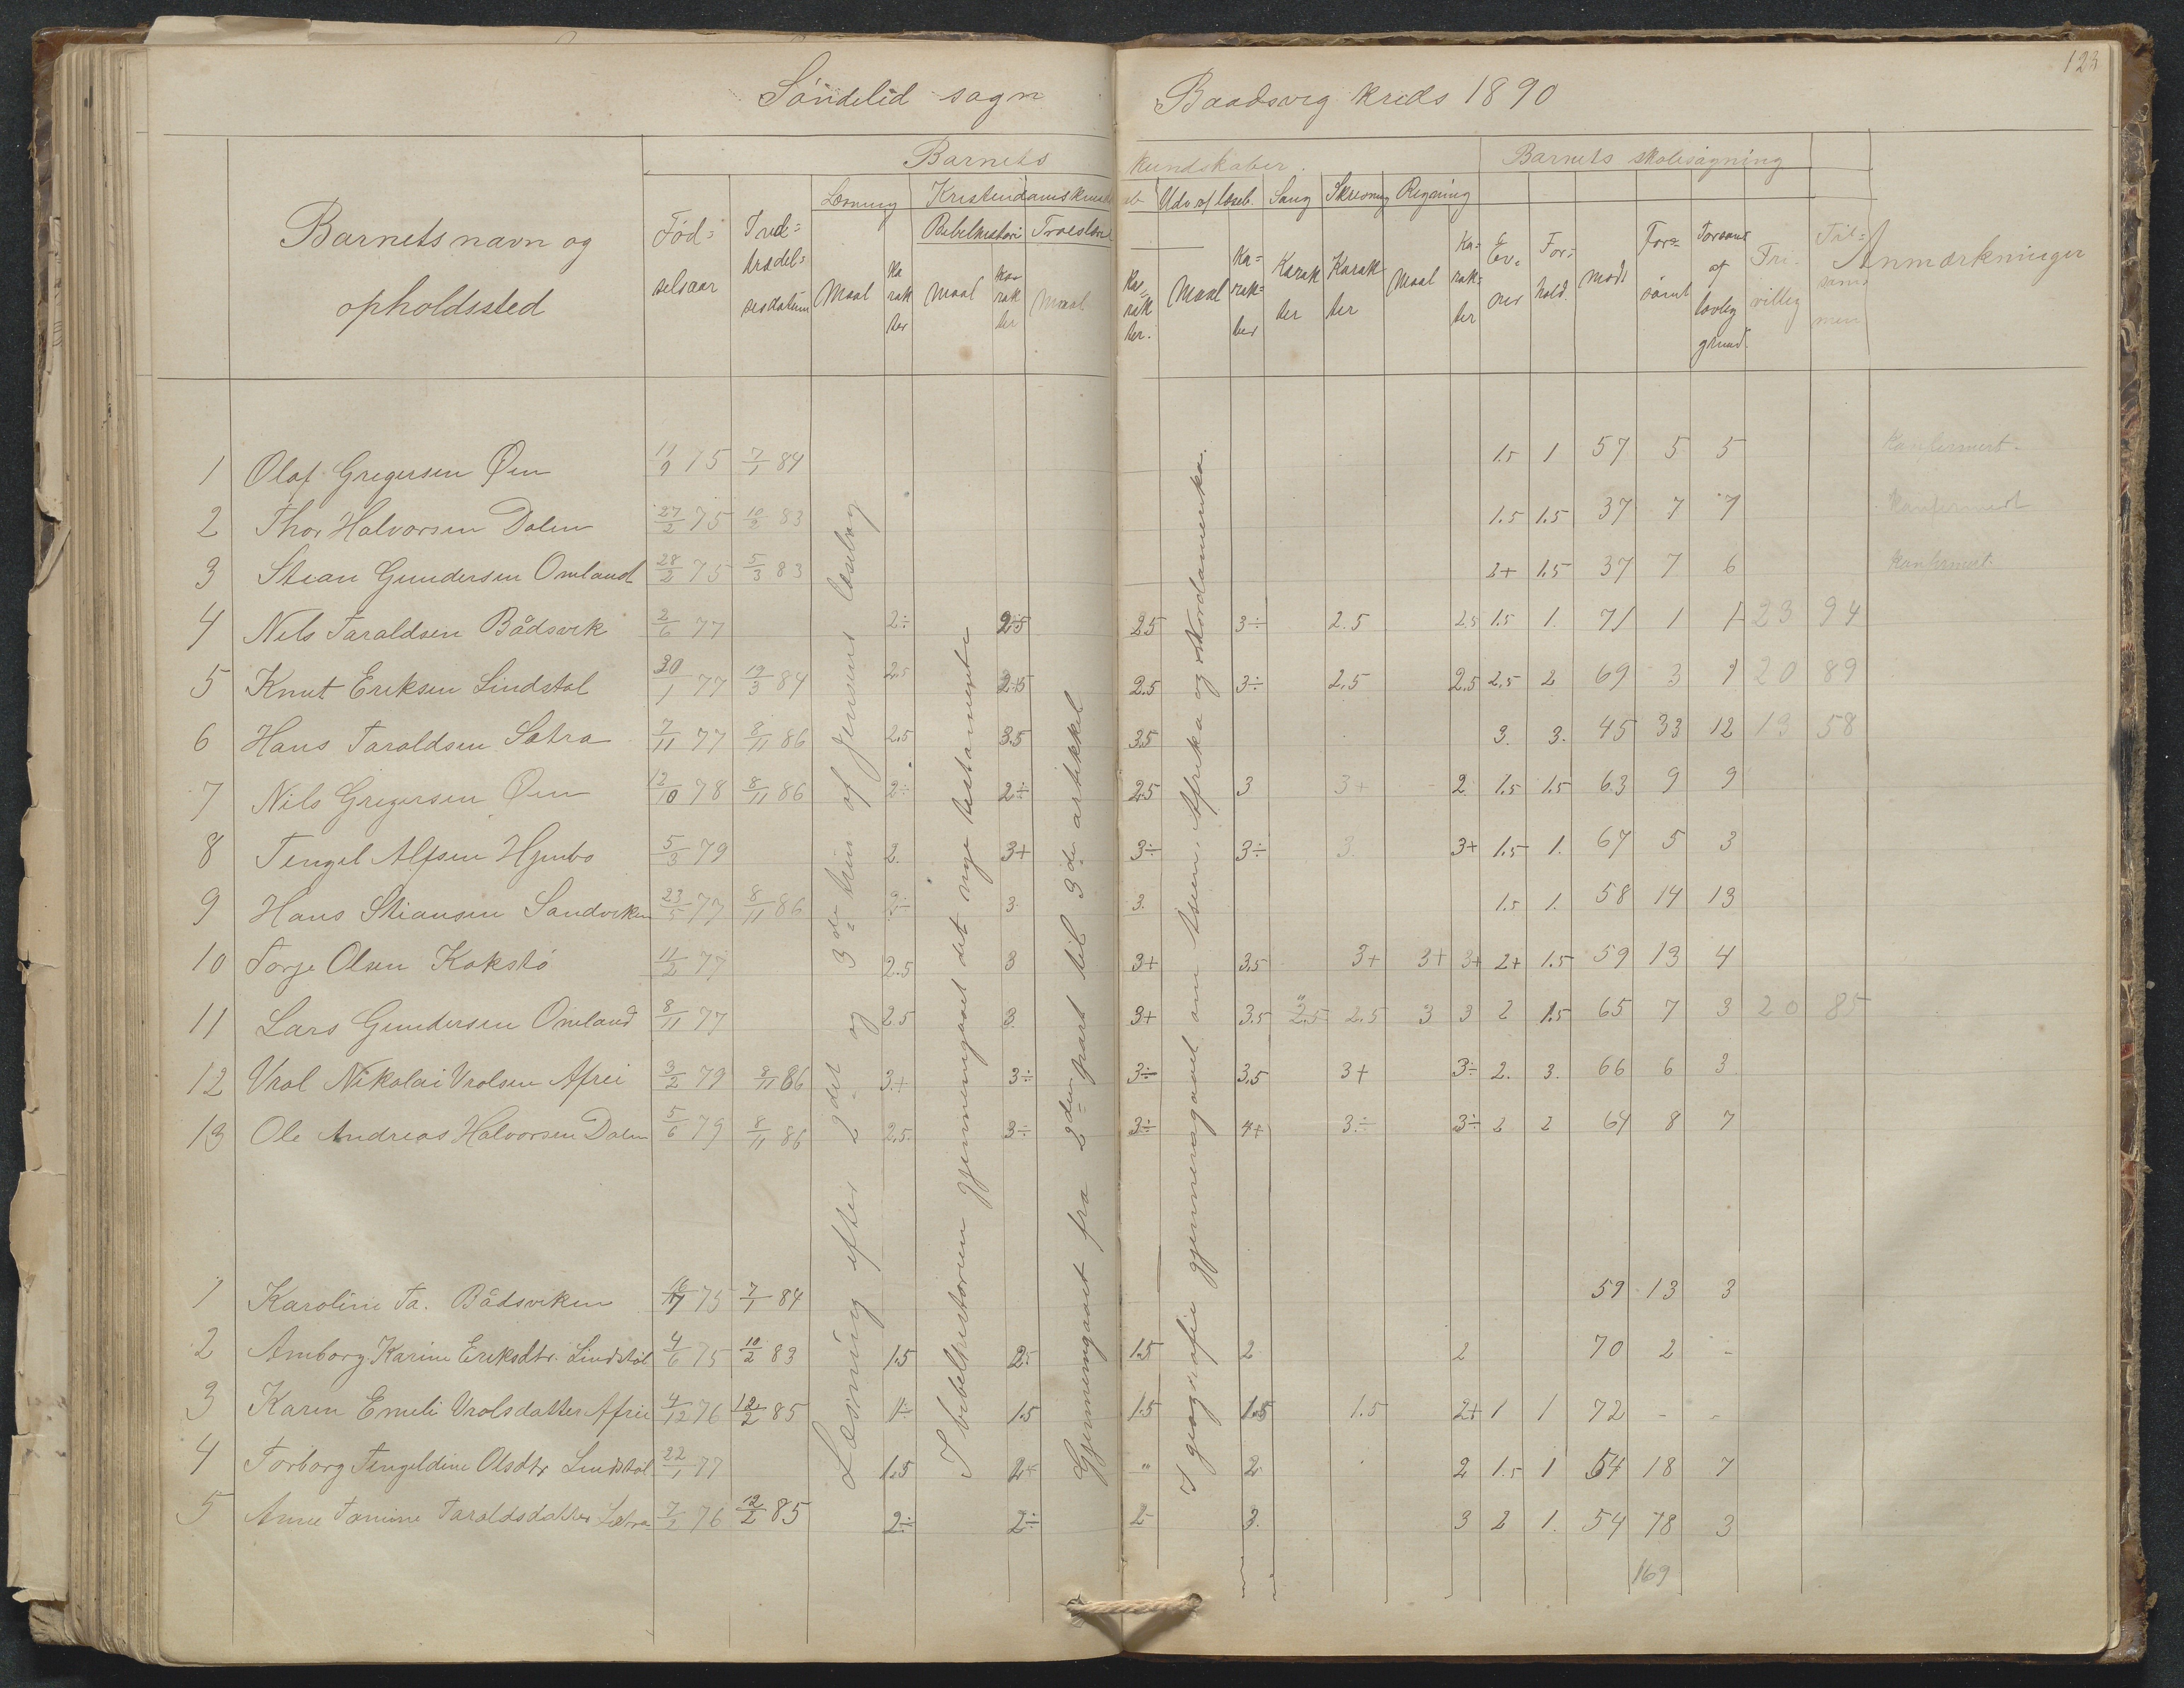 123
Söndelid sogn Baadsvig kreds 1890
Barnets kundskaber. Barnets skolesøgning
Læsning Kristendomskund Udv. af læseb. Sang Skrivning Regning
Bibelhistori Troeslære
Barnets navn og opholdssted
Fød=selsaar
Ind=trædel=sesdatum
Maal Ka rak ter Maal Ka rak ter Maal Ka rak ter. Maal Ka=rak=ter Karak ter Karak ter Maal Ka=rak=ter Ev=ner For=hold. mødt For=sømt Forsømt af lovlig grund. Fri=villig Til=sam men Anmærkninger
1 Olaf Gregersen Øen 11/9 75 7/1 84 1.5 1 57 5 5 Konfermert.
2 Thor Halvorsen Dalen 27/2 75 10/2 83 1.5 1.5 37 7 7 Konfermert
3 Stian Gundersen Omland 28/2 75 5/3 83 2+ 1.5 37 7 6 konfermert.
4 Nils Taraldsen Bådsvik 2/6 77 2÷ 2.5 2.5 3÷ 2.5 2.5 1.5 1. 71 1 1 23 94
5 Knut Eriksen Lindstøl 30/1 77 19/3 84 2.5 2.5 2.5 3÷ 2.5 2.5 2.5 2 69 3 1 20 89
6 Hans Taraldsen Sætra 7/11 77 8/11 86 2.5 3.5 3.5 3. 3. 45 33 12 13 58
7 Nils Gregersen Øen 12/10 78 8/11 86 2÷ 2÷ 2.5 3 3+ 2. 1.5 1.5 63 9 9
8 Tengel Alfsen Hjembo 5/3 79 2. 3+ 3÷ 3÷ 3. 3+ 1.5 1. 67 5 3
9 Hans Stiansen Sandviken 23/5 77 8/11 86 2÷ 3 3. 1.5 1. 58 14 13
10 Torje Olsen Kokstö 11/2 77 2.5 3 3+ 3.5 3+ 3+ 3+ 2+ 1.5 59 13 4
11 Lars Gundersen Omland 8/11 77 2.5 3. 3+ 3.5 2.5 2.5 3 3 2 1.5 65 7 3 20 85
12 Vrol Nikolai Vrolsen Afrei 3/2 79 8/11 86 3+ 3÷ 3÷ 3.5 3+ 3÷ 2. 3. 66 6 3
13 Ole Andreas Halvorsen Dalen 5/6 79 8/11 86 2.5. 3÷ 3÷ 4+ 3÷ 3÷ 2 2 64 8 7
1 Karoline Ta. Bådsviken 75 7/1 84 59 13 3
2 Amborg Karine Eriksdtr. Lindstøl 4/6 75 10/2 83 1.5 2.5 1.5 2 2 70 2 -
3 Karen Emeli Vrolsdatter Afrei 4/12 76 12/2 85 1÷ 1.5 1.5 1.5 1.5 2+ 1 1 72 - -
4 Torborg Tengeldine Olsdtr Lindstøl 22/1 77 1.5 2+ " 2 2 1.5 1 54 18 7
5 Anne Tomine Taraldsdatter Sætra 7/2 76 12/2 85 2÷ 2÷ 2- 3. 3 2 1. 54 18 3
169
Læsning efter 2det og 3die trin af Jensens læsebog
I bibelhistorien gjennemgaaet det nye testamente
Gjennemgaaet fra 2den part til 3die artikkel
I geografie gjennemgaaet om Asien, Afrika og Nordamerika.